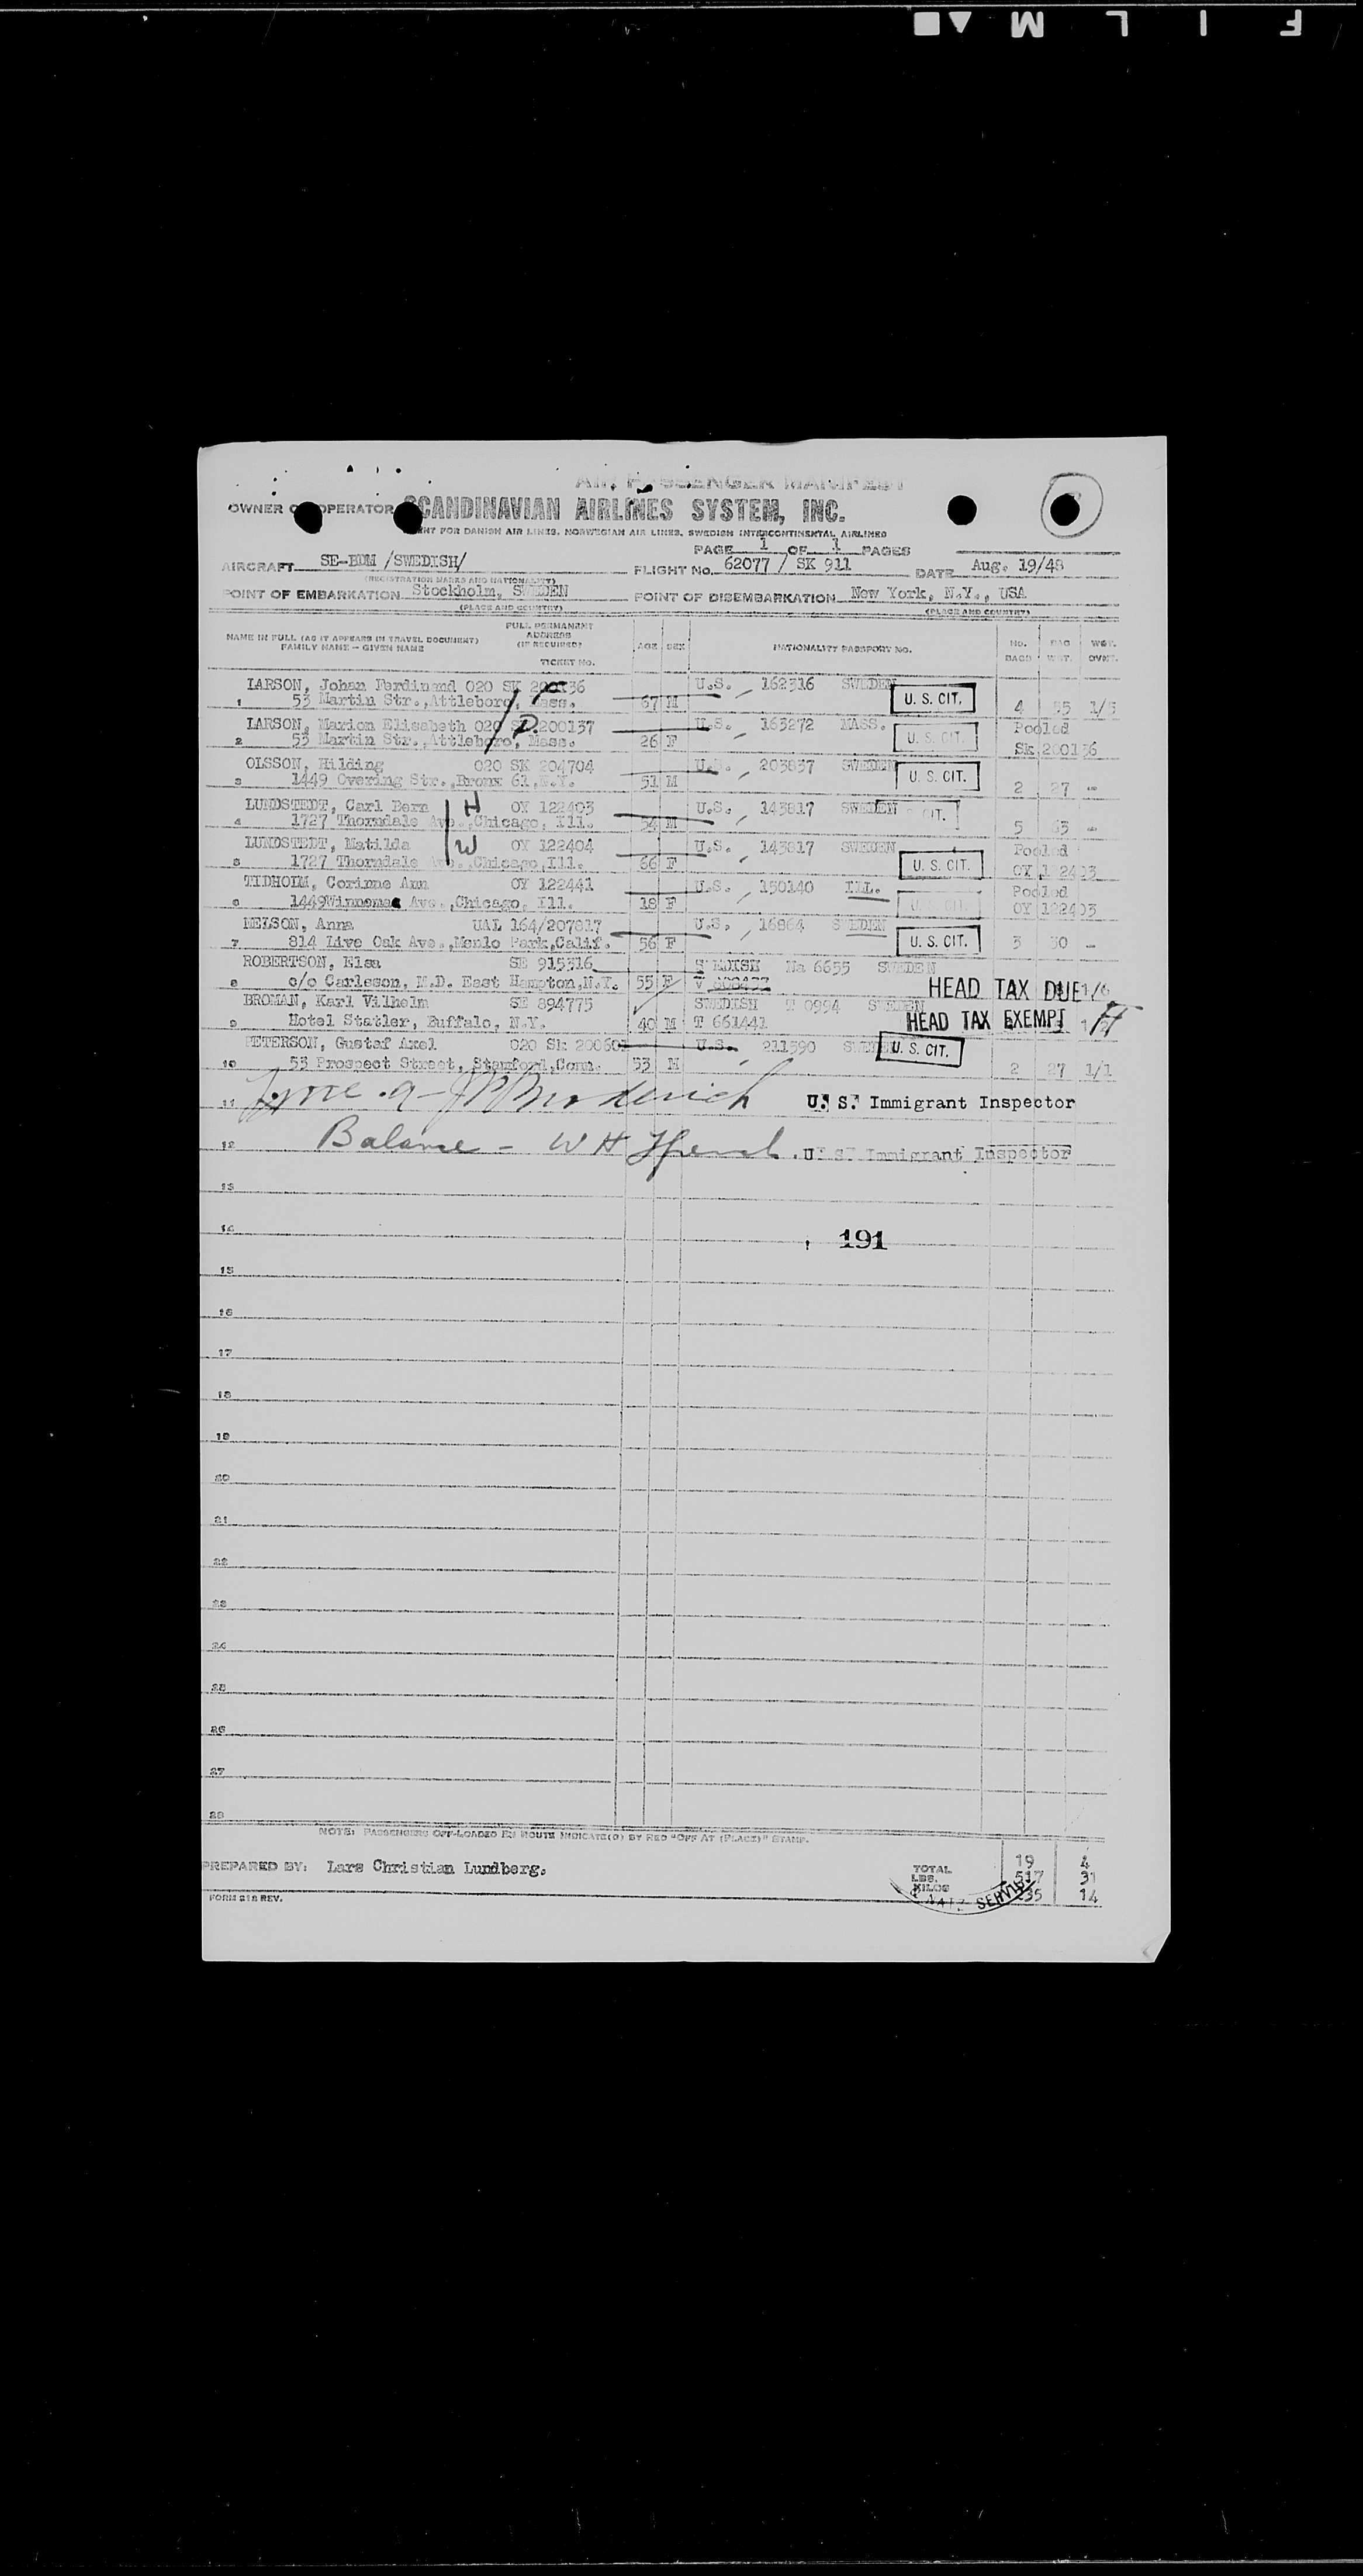 F I L M
AIR PASSENGER MANIFEST
OWNER OR OPERATOR SCANDINAVIAN AIRLINES SYSTEM, INC.
FOR DANISH AIR LINES, NORWEGIAN AIR LINES, SWEDISH INTERCONTINENTAL AIRLINES
PAGE 1 OF 1 PAGES
AIRCRAFT SE-BDM /SWEDISH/ FLIGHT No. 62077 / SK 911 DATE Aug. 19/48
(REGISTRATION MARKS AND NATIONALITY)
POINT OF EMBARKATION Stockholm, SWEDEN POINT OF DISEMBARKATION New York, N.Y., USA
(PLACE AND COUNTRY) (PLACE AND COUNTRY)
NAME IN FULL (AS IT APPEARS IN TRAVEL DOCUMENT) FAMILY NAME - GIVEN NAME FULL PERMANENT ADDRESS (IF REQUIRED) TICKET NO. AGE SEX NATIONALITY PASSPORT NO. NO. BAGS BAG WGT. WGT. OVWT.
LARSON, Johan Ferdinand 020 SK 200136 U.S. 162316 SWEDEN U. S. CIT.
1 53 Martin Str., Attleboro, Mass. 67 M 4 55 1/3
LARSON, Marion Elisabeth 020 SK 200137 D. U.S. 163272 MASS. U. S. CIT. Pooled
2 53 Martin Str., Attleboro, Mass. 26 F Sk 200136
OLSSON, Hilding 020 SK 204704 U.S. 203837 SWEDEN U. S. CIT.
3 1449 Overing Str., Bronx 61, N.Y. 51 M 2 27 -
LUNDSTEDT, Carl Bern H OY 122403 U.S. 143817 SWEDEN CIT.
4 1727 Thorndale Ave., Chicago, Ill. 54 M 5 63 -
LUNDSTEDT, Matilda W OY 122404 U.S. 143817 SWEDEN Pooled
5 1727 Thorndale Ave., Chicago, Ill. 66 F U. S. CIT. OY 122403
TIDHOLM, Corinne Ann OY 122441 U.S. 150140 ILL. Pooled
6 1449 Winnemac Ave., Chicago, Ill. 18 F U. S. CIT. OY 122403
NELSON, Anna UAL 164/207817 U.S. 16864 SWEDEN
7 814 Live Oak Ave., Menlo Park, Calif. 56 F U. S. CIT. 3 30 -
ROBERTSON, Elsa SE 915316 SWEDISH Na 6655 SWEDEN
8 c/o Carlsson, M.D. East Hampton, N.Y. 55 F HEAD TAX DUE
BROMAN, Karl Vilhelm SE 894775 SWEDISH T 0994 SWEDEN
9 Hotel Statler, Buffalo, N.Y. 40 M T 661441 HEAD TAX EXEMPT
PETERSON, Gustaf Axel 020 Sk U.S. 211590 SWEDEN U. S. CIT.
10 53 Prospect Street, Stamford, Conn. 53 M 2 27 1/1
11 U. S. Immigrant Inspector
12 Balance - W H U. S. Immigrant Inspector
13
14 191
15
16
17
18
19
20
21
22
23
24
25
26
27
28
NOTE: PASSENGERS OFF-LOADED EN ROUTE INDICATE(D) BY RED "OFF AT (PLACE)" STAMP.
PREPARED BY: Lars Christian Lundberg.
TOTAL 19 4
LBS. 517 31
KILOS 235 14
FORM 218 REV.